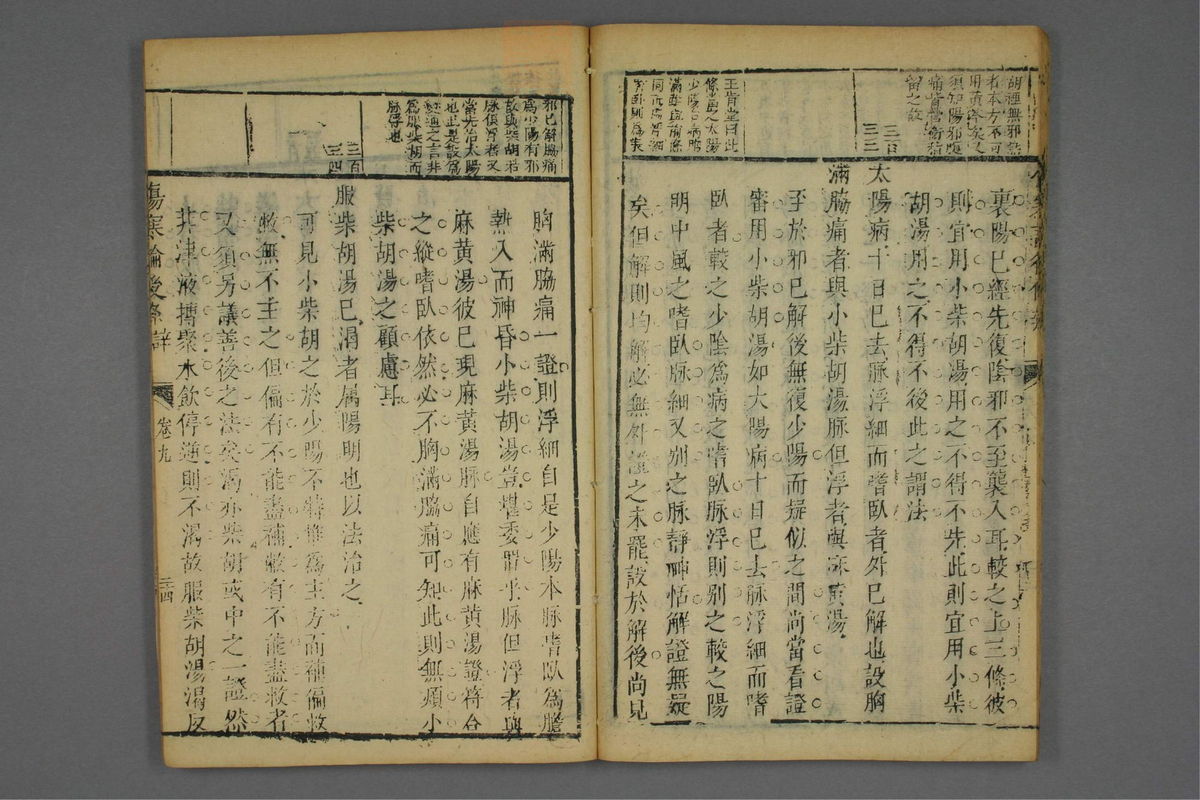 胡湯無邪熱
者本方不可
用黃芩矣又
須知陽邪雖
痛實營衛稽
留之故
三百
三三
王肯堂曰此
條當入太陽
少陽合病胸
滿
裏陽已經先復陰邪不至襲入耳較之上三條彼
則宜用小柴胡湯用之不得不先此則宜用小柴
胡湯用之不得不後此之謂法
太陽病十日已去脉浮細而嗜臥者外已解也設胸
滿脇痛者與小柴胡湯脉但浮者與麻黃湯
至於邪已解後無復少陽而疑似之間尚當看證
審用小柴胡湯如太陽病十日已去脉浮細而嗜
臥者較之少陰爲病之嗜臥脉浮則别之較之陽
明中風之嗜臥脉細又别之脉靜神恬解證無疑
矣但解則均解必無外證之未罷設於解後尚見
邪已解脇痛
爲少陽有邪
故與柴胡若
脉但浮者又
當先治太陽
也此是設爲
變通之言非
爲服柴胡而
脉浮也
三百
三四
胸滿脇痛一證則浮細自是少陽本脉嗜臥爲膽
熱入而神昏小柴胡湯豈堪委罪乎脉但浮者與
麻黃湯彼已現麻黃湯脉自應有麻黃湯證符合
之縱嗜臥依然必不胸滿脇痛可知此則無煩小
柴胡湯之顧慮耳
服柴胡湯已渴者属陽明也以法治之
可見小柴胡之於少陽不特惟爲主方而補偏救
弊無不主之但偏有不能盡補弊有不能盡救者
又須另議善後之法矣渴亦柴胡或中之一證然
非津液摶聚水飲停逆則不渴故服柴胡湯渴反
傷寒論後條辯
卷九
三四